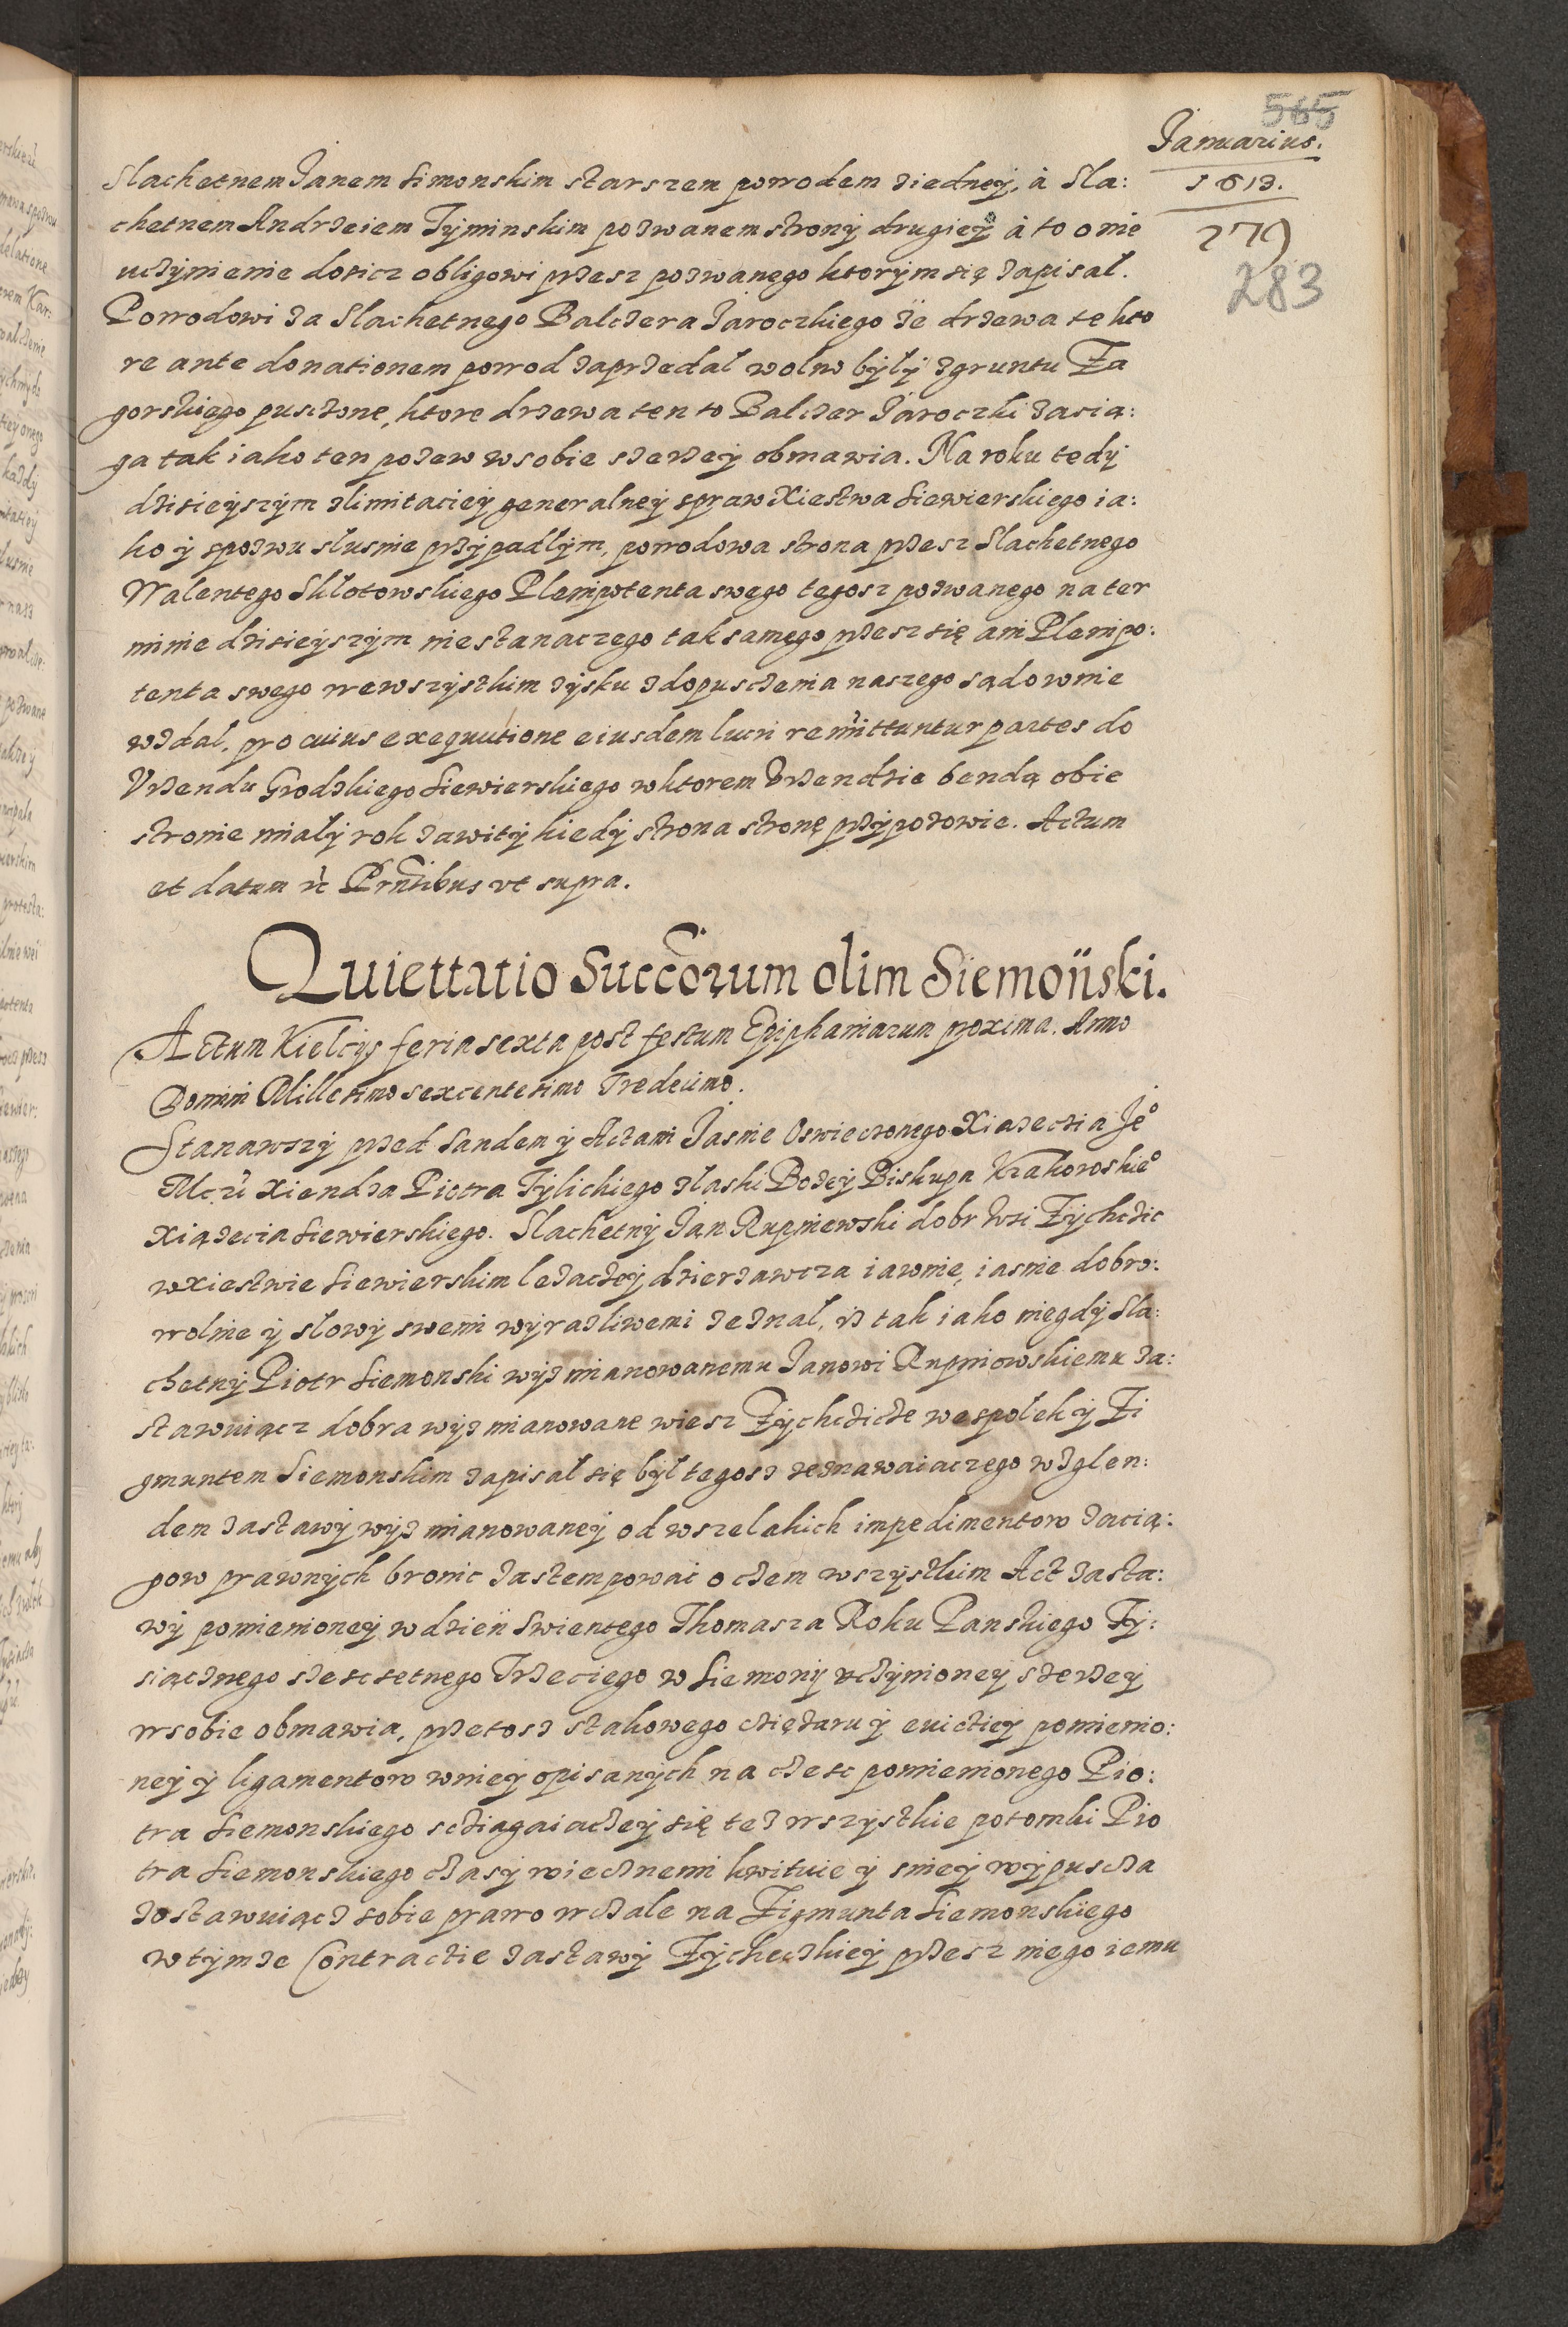 565
Januarius.
1613.
279
283
Slachetnem Janem Simonskim starszem powodem ziedney, à Sla:
chetnem Andrzeiem Tyminskim pozwanem strony drugiey à to o nie
uczynienie dosicz obligowi przesz pozwanego ktorym się zapisal.
Powodowi za Slachetnego Balczera Jaroczkiego że drzewa te kto
re ante donationem powod zaprzedal wolno były zgruntu Za
gorskiego pusczone, ktore drzewa ten to Balczer Jaroczki zacią:
ga tak iako ten pozew wsobie szerzey obmawia. Na roku tedy
dzisieyszym zlimitaciey generalney spraw Xiestwa Siewierskiego ia:
ko y spozwu slusnie przypadlym, powodowa strona przesz Slachetnego
Walentego Sklotowskiego Plenipotenta swego tegosz pozwanego na ter
minie dzisieyszym niestanaczego tak samego przesz się ani Plenipo:
tenta swego wewszystkim zysku zdopusczenia naszego sądownie
wzdal, pro cuius exequutione eiusdem lucri remittuntur partes do
Vrzendu Grodzkiego Siewierskiego wktorem Vrzendzie bendą obie
stronie mialy rok zawity kiedy strona stronę przypozowie. Actum
et datum ut Prntibus vt supra.
Quiettatio Succorum olim Siemoński.
Actum Kielcys feria sexta post festum Epiphaniarum proxima. Anno
Domini Millesimo sexcentesimo Tredecimo.
Stanawszy przed Sandem y Actami Jasnie Oswieczonego Xiazecia Jeo
Mczi Xiendza Piotra Tylickiego zlaski Bozey Biskupa Krakowskieo
Xiązecia Siewierskiego. Slachetny Jan Rupniewski dobr Wsi Zychczic
wxiestwie Siewierskim lezaczey dzierzawcza iawnie, iasnie dobro:
wolnie y slowy swemi wyrazliwemi zeznal, iz tak iako niegdy Sla:
chetny Piotr Siemonski wyz mianowanemu Janowi Rupniowskiemu za:
stawuiącz dobra wyz mianowane wiesz Zychczicze wespolek y Zi
gmuntem Siemonskim zapisal się byl tegosz zeznawaiaczego wzglen:
dem zastawy wyz mianowaney od wszelakich impedimentow zacią:
gow prawnych bronic zastempowac o czem wszystkim Act zasta:
wy pomienioney w dzień Swientego Thomasza Roku Panskiego Ty:
siącznego szescsetnego Trzeciego w Siemony uczynioney szerzey
wsobie obmawia, przetosz stakowego cziężaru y euictiey pomienio:
ney y ligamentow wniey opisanych na czesc pomienionego Pio:
tra Siemonskiego scziągaiaczey się tez wszystkie potomki Pio
tra Siemonskiego czasy wiecznemi kwituie y sniey wypuscza
zostawuiącz sobie prawo wczale na Zigmunta Siemonskiego
wtymze Contractie zastawy Zycheczkiey przesz niego iemu